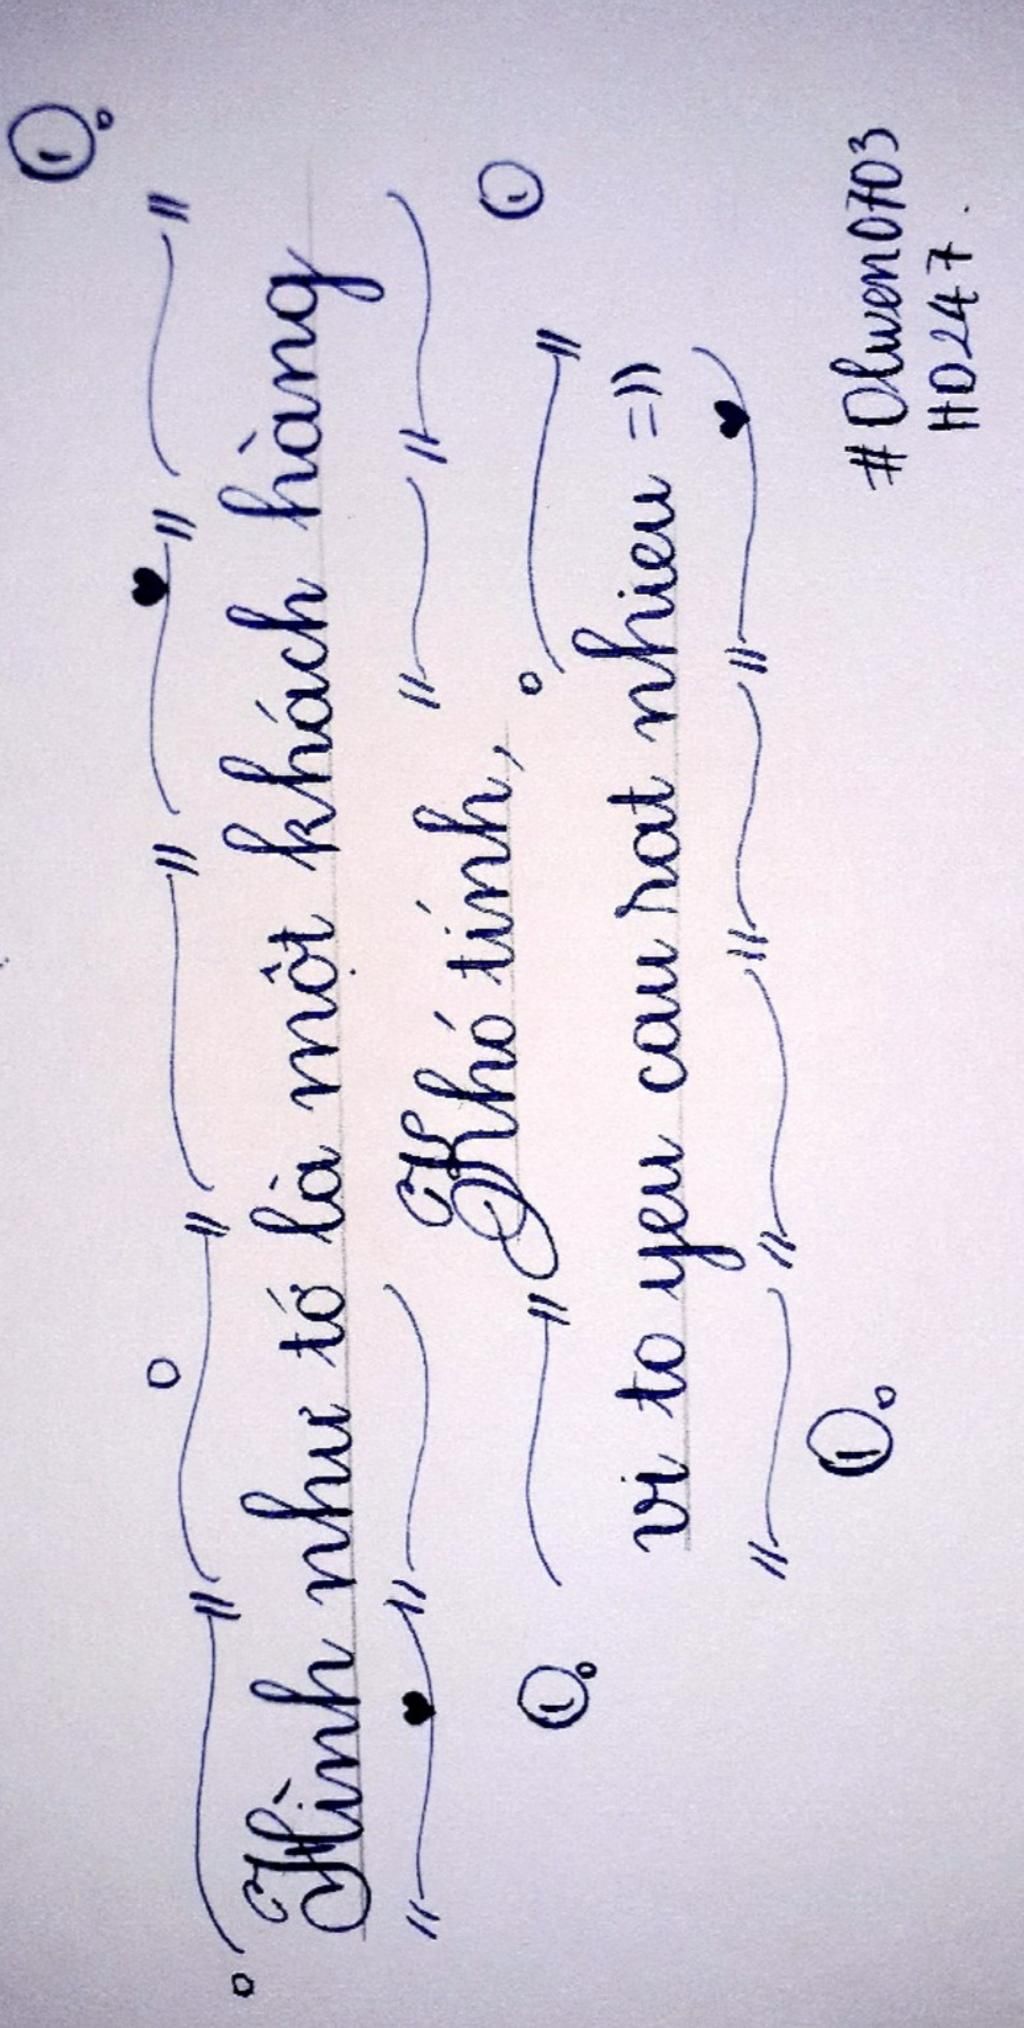 Hình như tớ là một khách hàng
Khó tính,
vi to yeu cau rat nhieu =))
#Olwen0703
HD247.